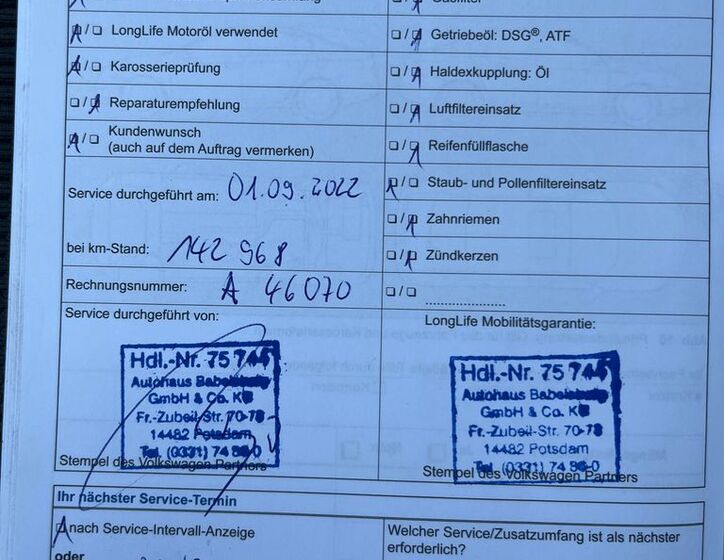 LongLife Motoröl verwendet
Getriebeöl: DSG®, ATF
Karosserieprüfung
Haldexkupplung: Öl
Reparaturempfehlung
Luftfiltereinsatz
Kundenwunsch
(auch auf dem Auftrag vermerken)
Reifenfüllflasche
Service durchgeführt am: 01.09.2022
Staub- und Pollenfiltereinsatz
Zahnriemen
bei km-Stand: 142 968
Zündkerzen
Rechnungsnummer: A 46070
Service durchgeführt von:
LongLife Mobilitätsgarantie:
Hdl.-Nr. 75 744
Autohaus Babelsberg
GmbH & Co. KG
Fr.-Zubeil-Str. 70-78
14482 Potsdam
Tel. (0331) 74 86-0
Stempel des Volkswagen Partners
Hdl.-Nr. 75 744
Autohaus Babelsberg
GmbH & Co. KG
Fr.-Zubeil-Str. 70-78
14482 Potsdam
Tel. (0331) 74 86-0
Stempel des Volkswagen Partners
Ihr nächster Service-Termin
nach Service-Intervall-Anzeige
oder
Welcher Service/Zusatzumfang ist als nächster
erforderlich?